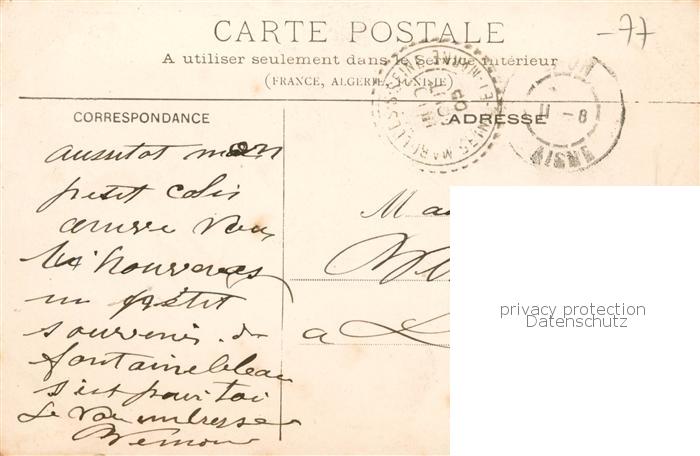 CARTE POSTALE
-77
A utiliser seulement dans le Service intérieur
(FRANCE, ALGERIE, TUNISIE)
CORRESPONDANCE
ADRESSE
aussitot mon
petit colis
arrive vou
trouveres
un petit
souvenir de
fontainebleau
s'est pour toi
Je vou embresse
Ma
a L
SEINE-ET-MARNE
11 - 8
AISNE
privacy protection
Datenschutz